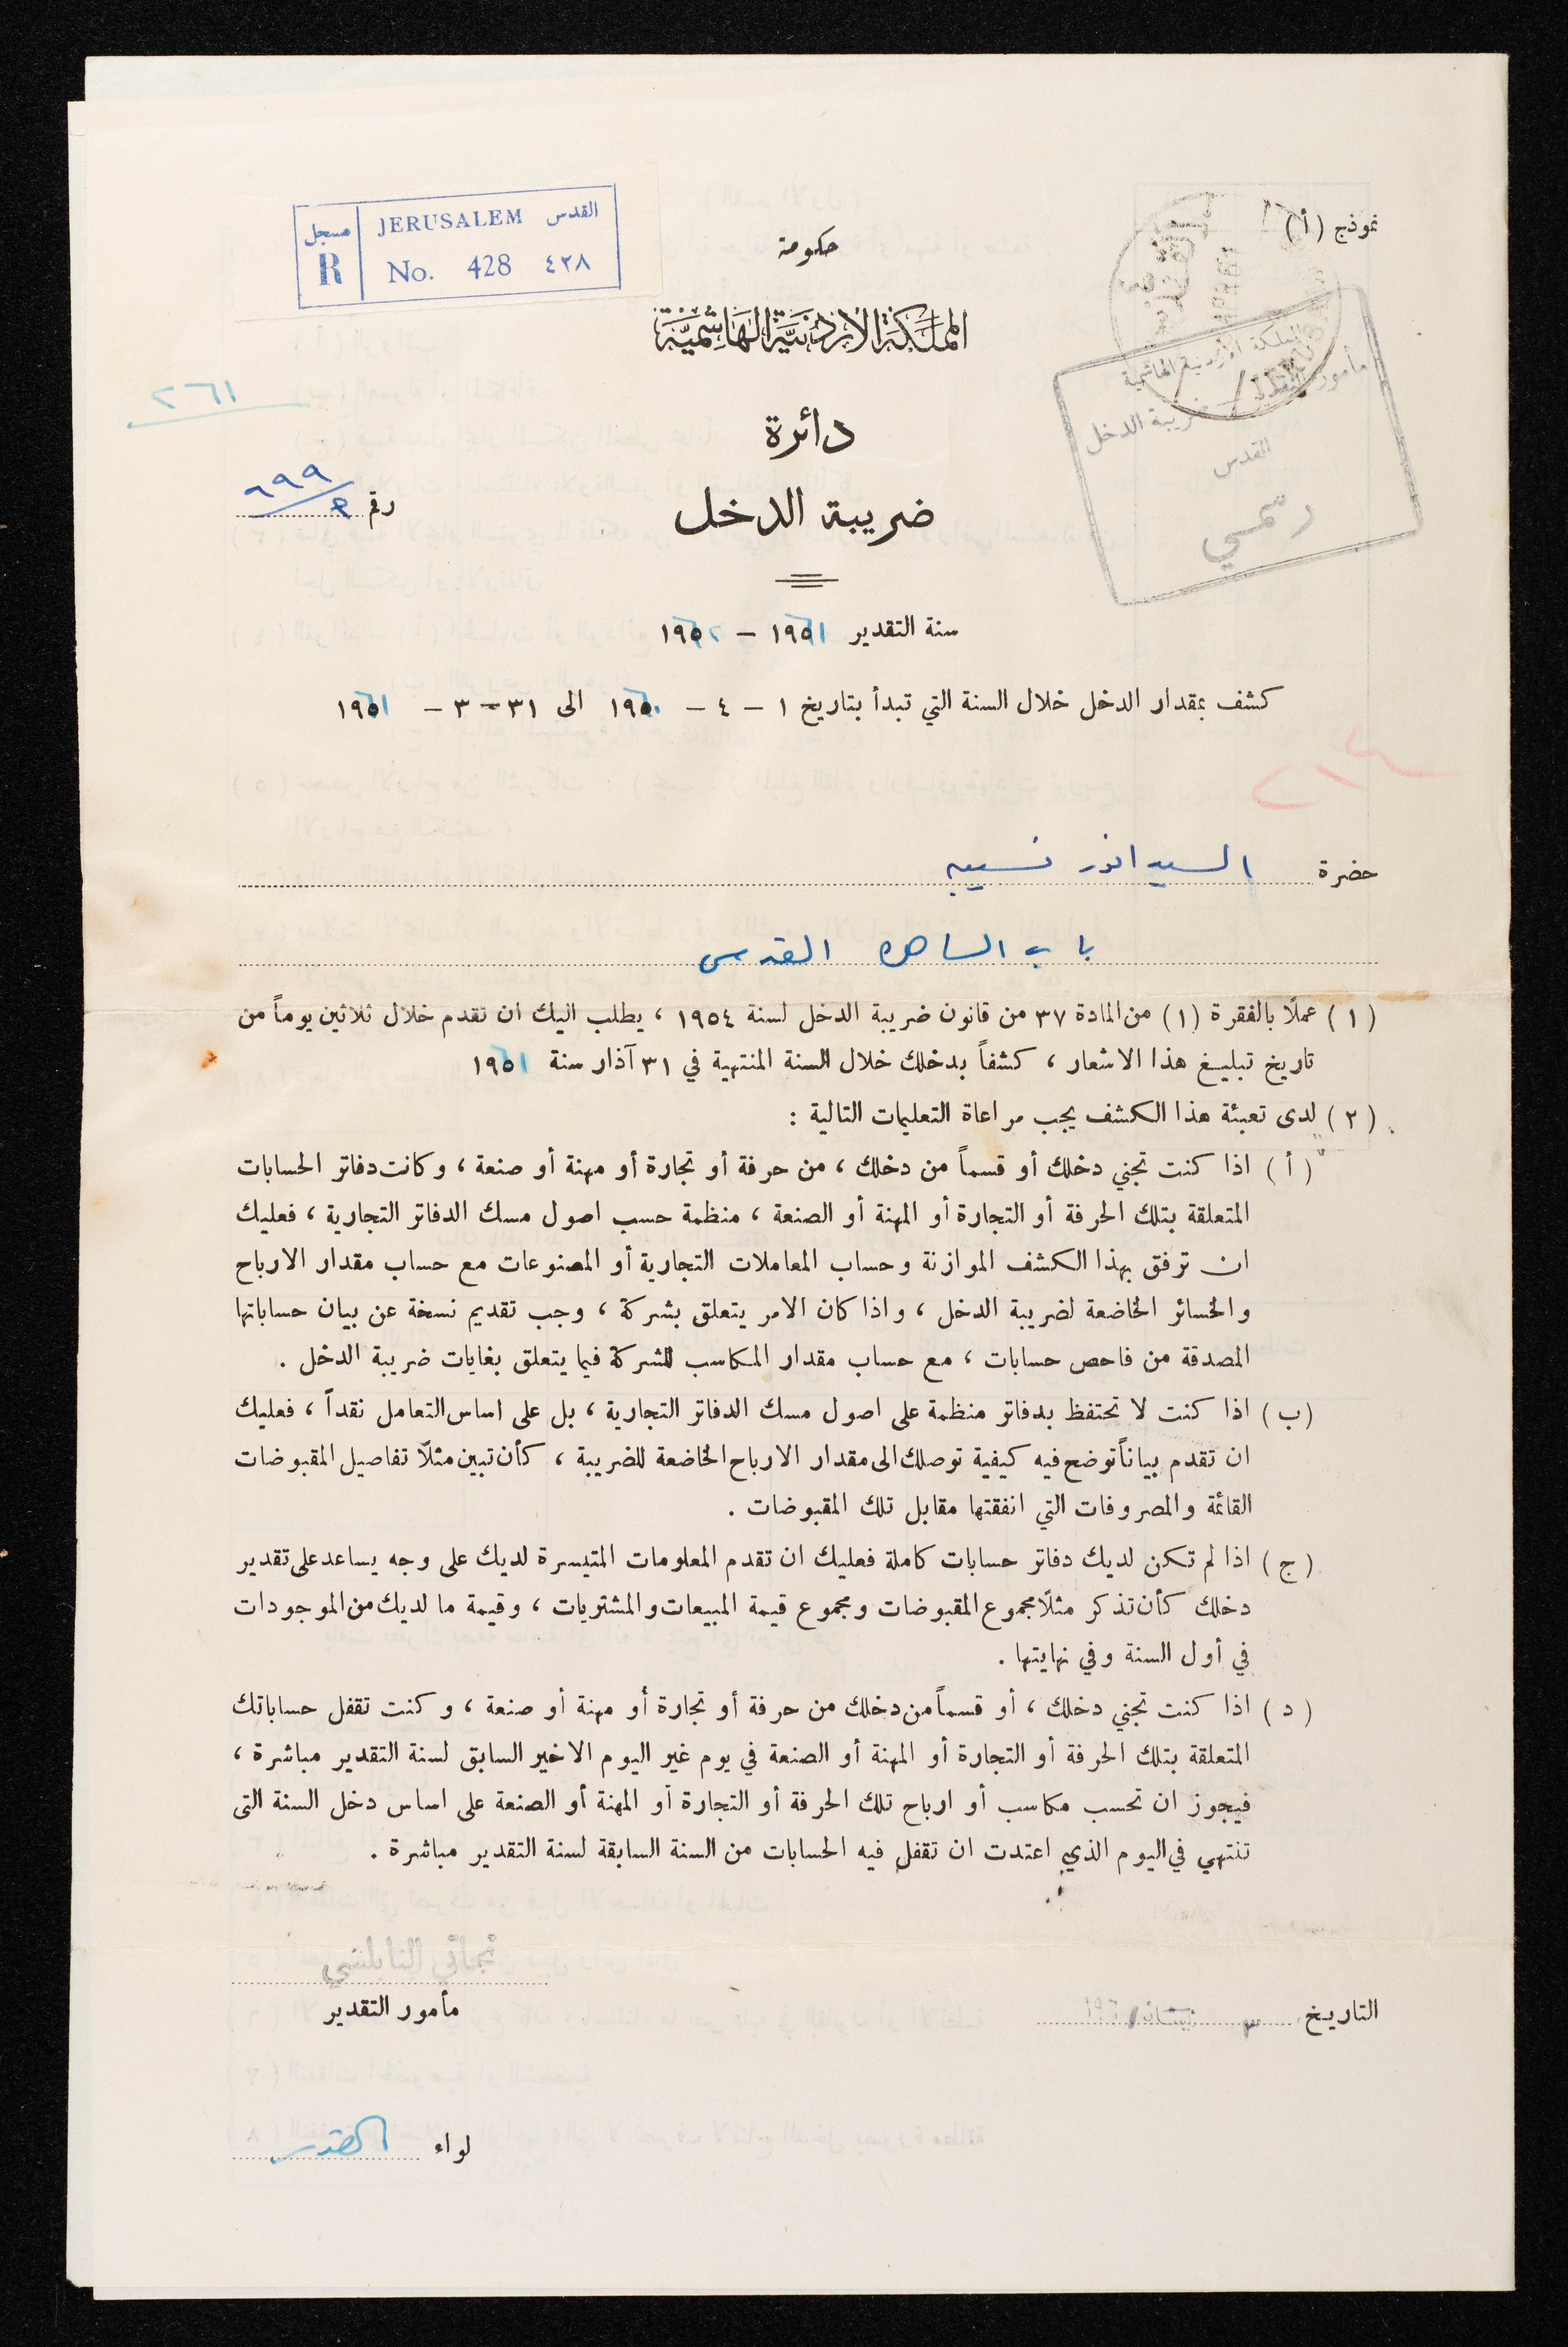 نموذج (أ)
القدس JERUSALEM مسجل
٤٢٨ No. 428 R
حكومة
المملكة الاردنية الهاشمية
دائرة
ضريبة الدخل
المملكة الاردنية الهاشمية
مأمور التقدير ضريبة الدخل
القدس
رسمي
٢٦١
رقم ٦٩٩
سنة التقدير ١٩٦١ – ١٩٦٢
كشف بمقدار الدخل خلال السنة التي تبدأ بتاريخ ١ – ٤ – ١٩٦٠ الى ٣١ – ٣ – ١٩٦١
حضرة السيد انور نسيبه
باب الساهره القدس
(١) عملًا بالفقرة (١) من المادة ٣٧ من قانون ضريبة الدخل لسنة ١٩٥٤ ، يطلب اليك ان تقدم خلال ثلاثين يوماً من
تاريخ تبليغ هذا الاشعار ، كشفاً بدخلك خلال السنة المنتهية في ٣١ آذار سنة ١٩٦١
(٢) لدى تعبئة هذا الكشف يجب مراعاة التعليمات التالية :
(أ) اذا كنت تجني دخلك أو قسماً من دخلك ، من حرفة أو تجارة أو مهنة أو صنعة ، وكانت دفاتر الحسابات
المتعلقة بتلك الحرفة أو التجارة أو المهنة أو الصنعة ، منظمة حسب اصول مسك الدفاتر التجارية ، فعليك
ان ترفق بهذا الكشف الموازنة وحساب المعاملات التجارية أو المصنوعات مع حساب مقدار الارباح
والخسائر الخاضعة لضريبة الدخل ، واذا كان الامر يتعلق بشركة ، وجب تقديم نسخة عن بيان حساباتها
المصدقة من فاحص حسابات ، مع حساب مقدار المكاسب للشركة فيما يتعلق بغايات ضريبة الدخل .
(ب) اذا كنت لا تحتفظ بدفاتر منظمة على اصول مسك الدفاتر التجارية ، بل على اساس التعامل نقداً ، فعليك
ان تقدم بياناً توضح فيه كيفية توصلك الى مقدار الارباح الخاضعة للضريبة ، كأن تبين مثلًا تفاصيل المقبوضات
القائمة والمصروفات التي انفقتها مقابل تلك المقبوضات .
(ج) اذا لم تكن لديك دفاتر حسابات كاملة فعليك ان تقدم المعلومات المتيسرة لديك على وجه يساعد على تقدير
دخلك كأن تذكر مثلًا مجموع المقبوضات ومجموع قيمة المبيعات والمشتريات ، وقيمة ما لديك من الموجودات
في أول السنة وفي نهايتها .
(د) اذا كنت تجني دخلك ، أو قسماً من دخلك من حرفة أو تجارة أو مهنة أو صنعة ، وكنت تقفل حساباتك
المتعلقة بتلك الحرفة أو التجارة أو المهنة أو الصنعة في يوم غير اليوم الاخير السابق لسنة التقدير مباشرة ،
فيجوز ان تحسب مكاسب أو ارباح تلك الحرفة أو التجارة أو المهنة أو الصنعة على اساس دخل السنة التى
تنتهي في اليوم الذي اعتدت ان تقفل فيه الحسابات من السنة السابقة لسنة التقدير مباشرة .
نجاتي النابلسي
مأمور التقدير
التاريخ نيسان
لواء القدس